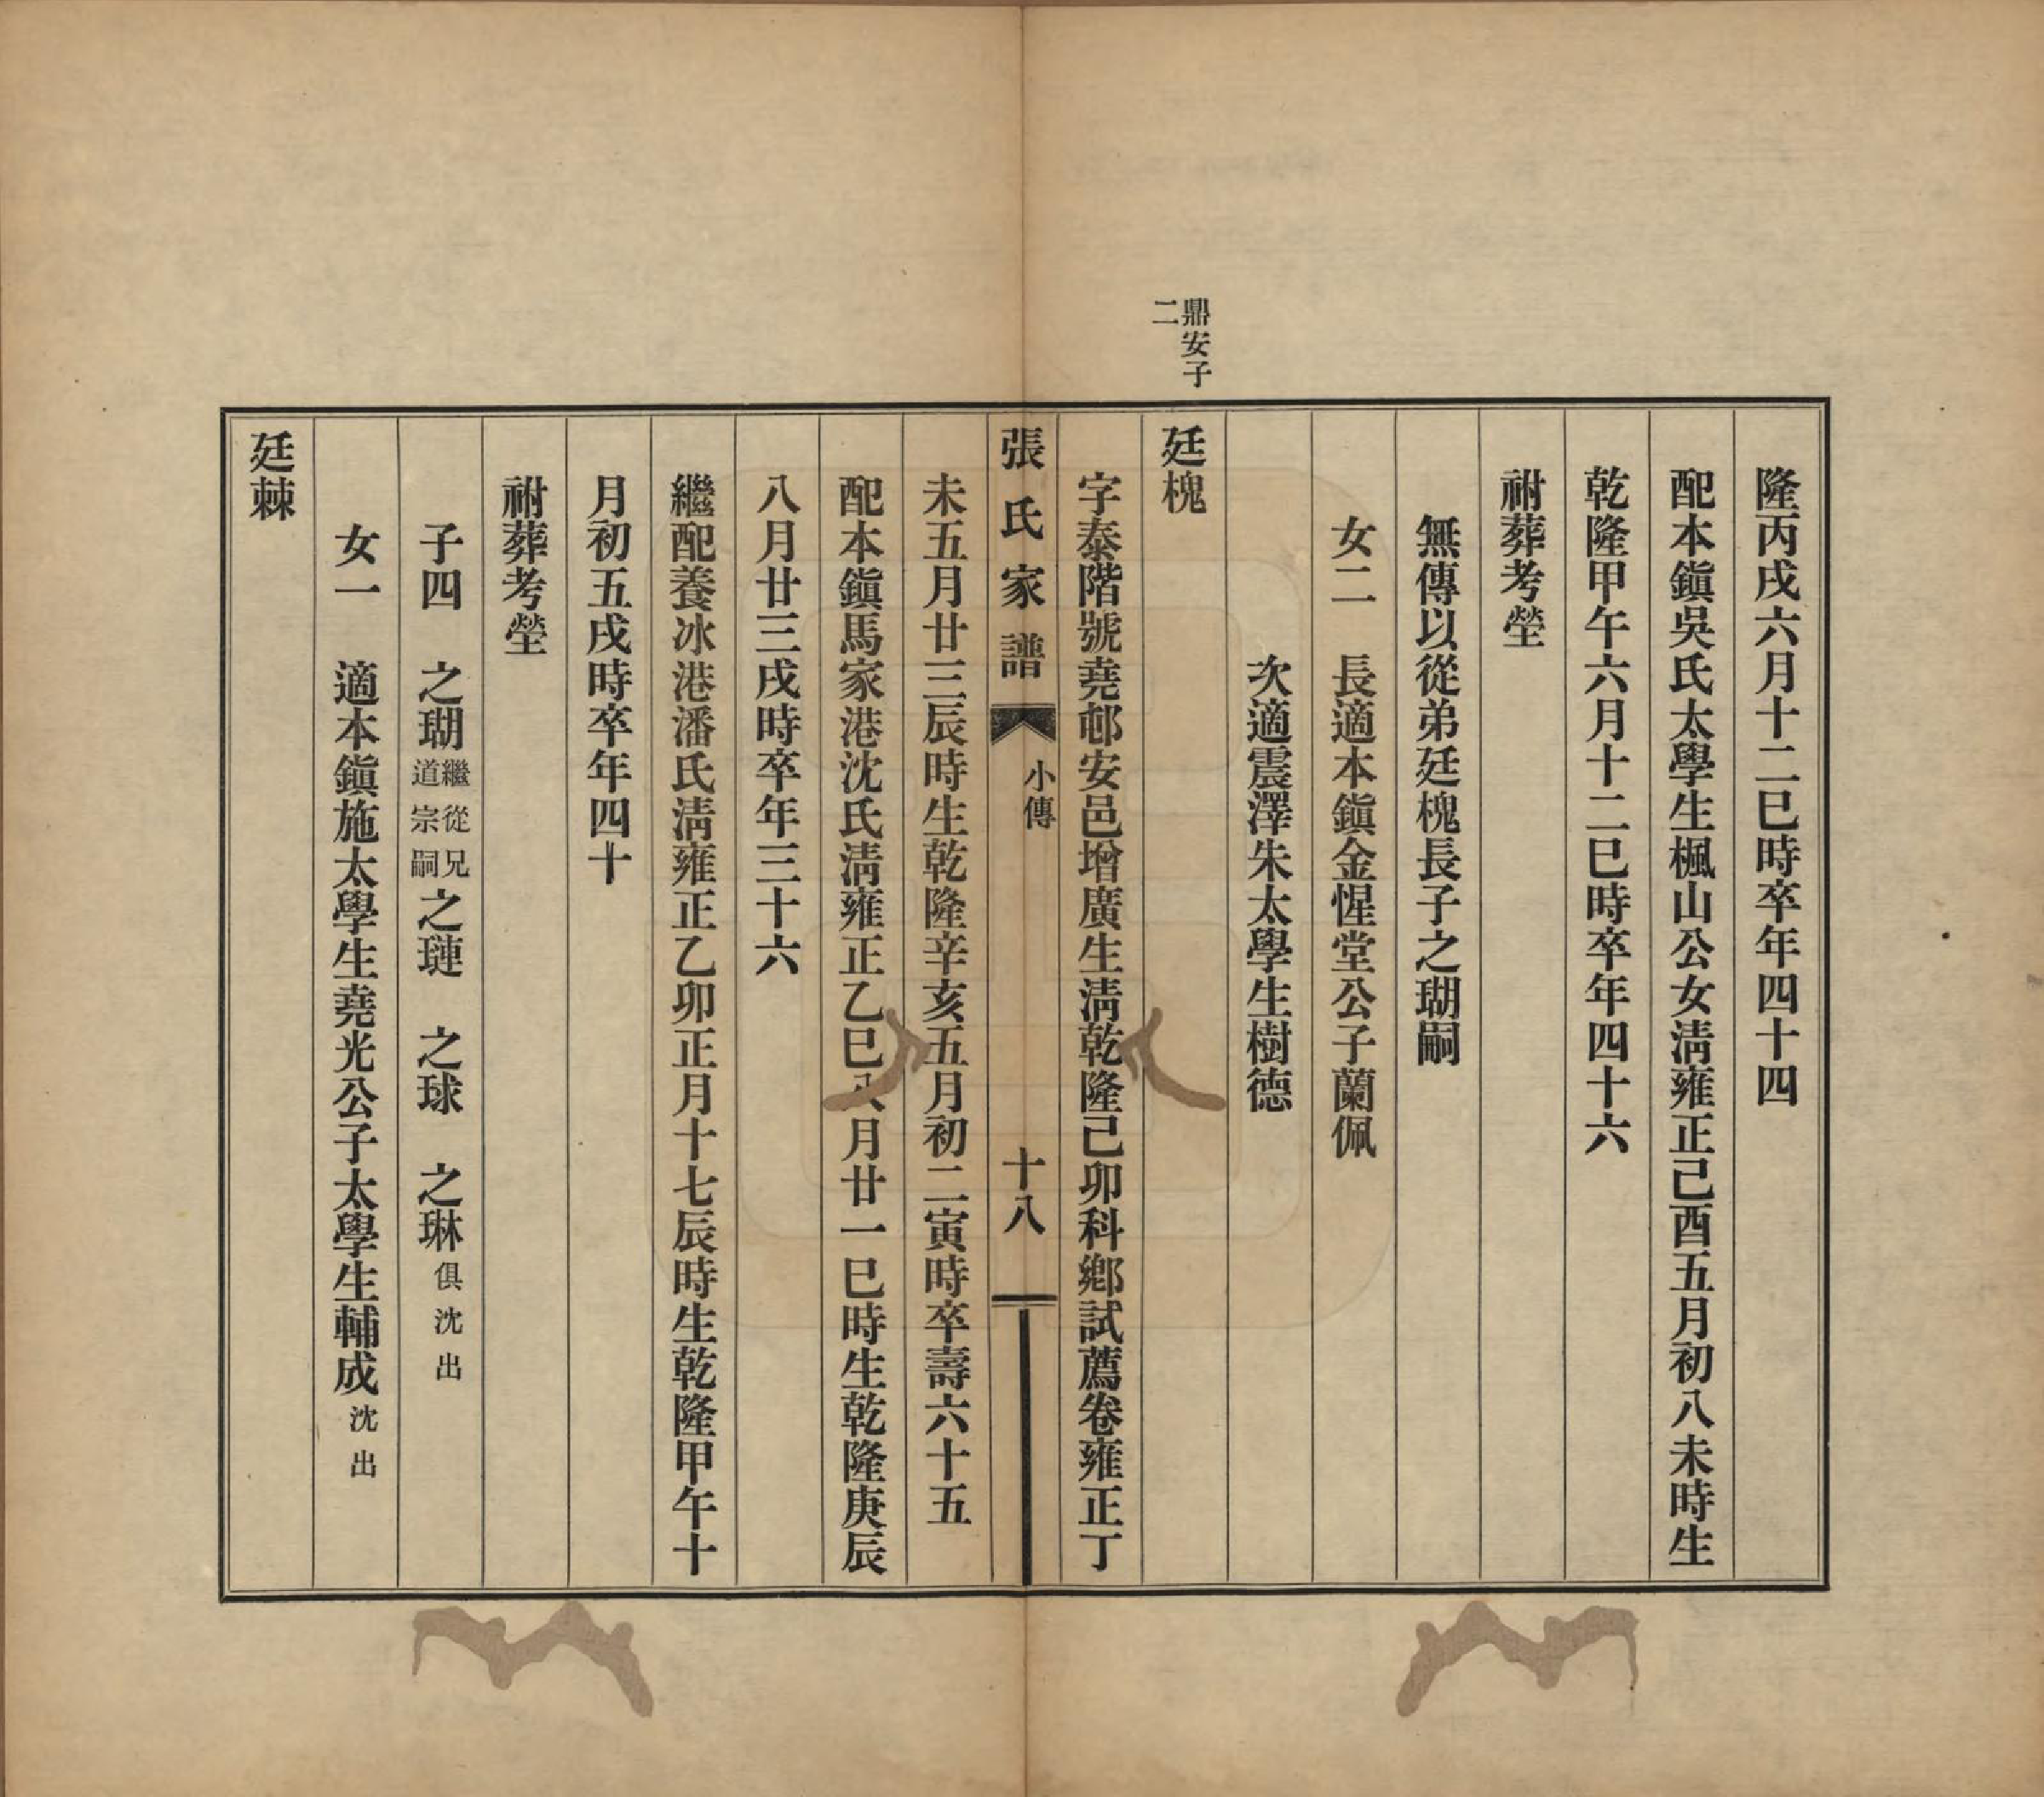 隆丙戌六月十二巳時卒年四十四
配本鎭吳氏太學生楓山公女淸雍正己酉五月初八未時生
乾隆甲午六月十二巳時卒年四十六
祔葬考塋
無傳以從弟廷槐長子之瑚嗣
女二　長適本鎭金惺堂公子蘭佩
次適震澤朱太學生樹德
鼎安子
二
廷槐
字泰階號堯邨安邑增廣生淸乾隆己卯科鄉試薦卷雍正丁
張氏家譜　小傳　十八
未五月廿三辰時生乾隆辛亥五月初二寅時卒壽六十五
配本鎭馬家港沈氏淸雍正乙巳八月廿一巳時生乾隆庚辰
八月廿三戌時卒年三十六
繼配養冰港潘氏淸雍正乙卯正月十七辰時生乾隆甲午十
月初五戌時卒年四十
祔葬考塋
子四　之瑚繼從兄道宗嗣之璉　之球　之琳俱沈出
女一　適本鎭施太學生堯光公子太學生輔成沈出
廷棘